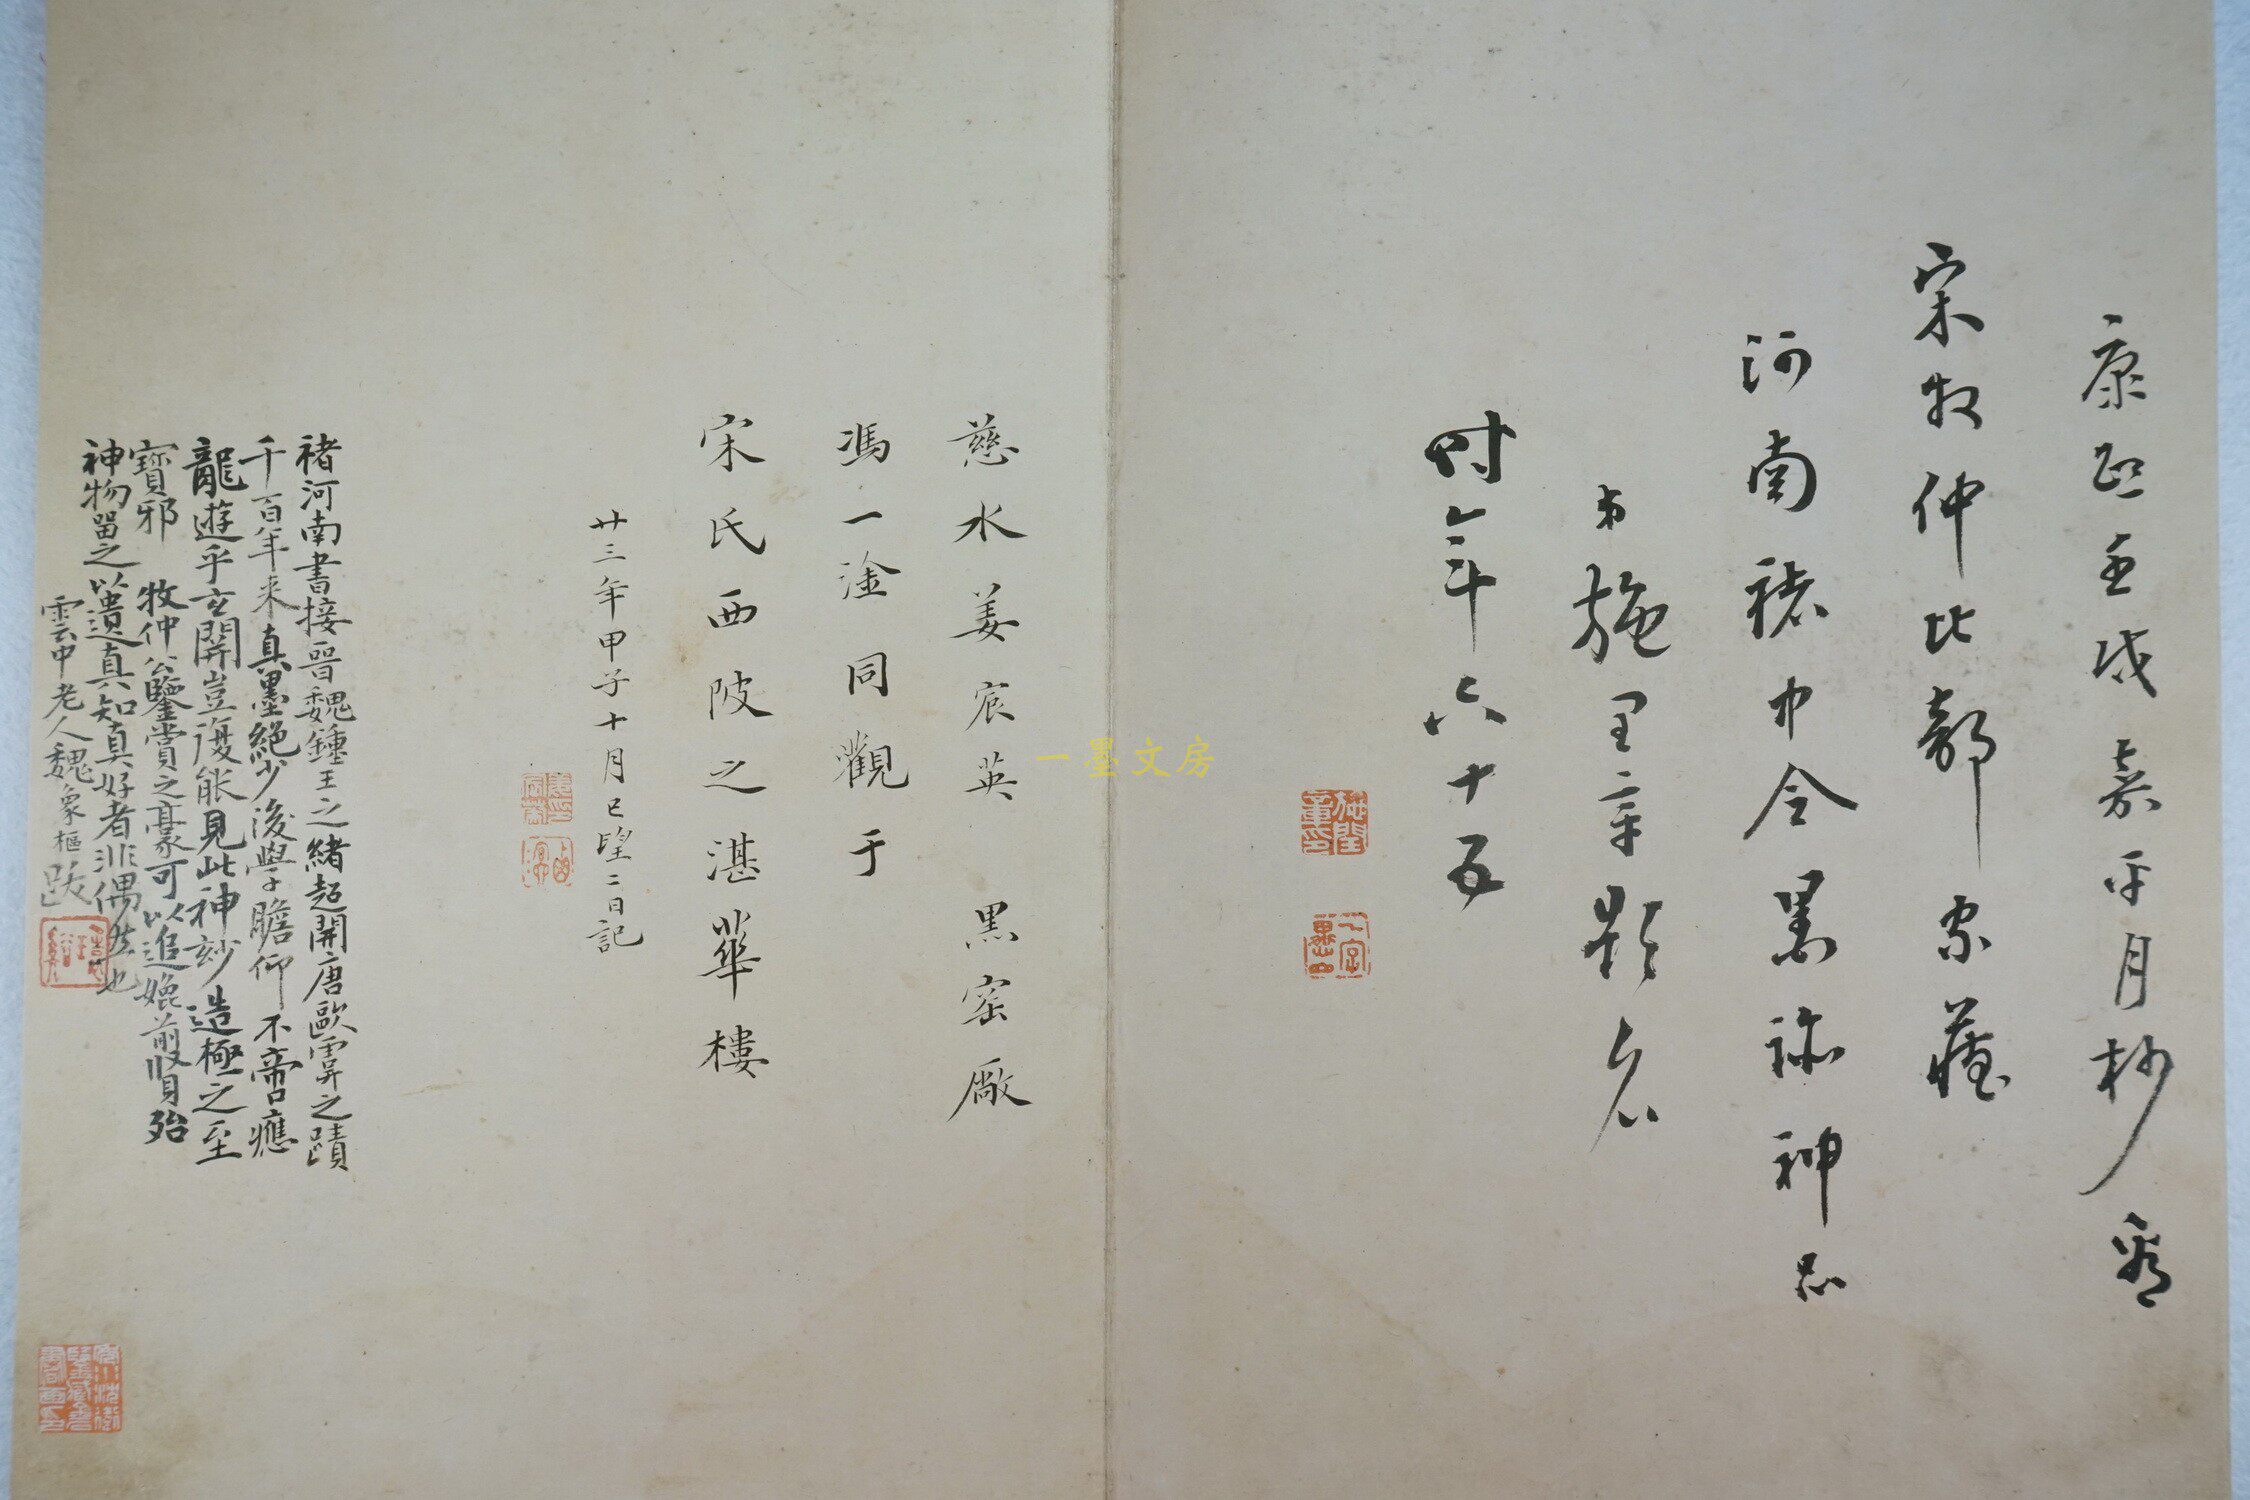 康熙壬戌嘉平月杪看
宋牧仲比部家藏
河南褚中令墨跡神品
弟施閏章題名
時年六十五
慈水姜宸英 黑窑廠
馮一淦同觀于
宋氏西陂之湛華樓
廿三年甲子十月已望二日記
褚河南書接晉魏鍾王之緒超開唐歐虞之蹟
千百年来真墨絕少後學瞻仰不啻應
龍遊乎玄開豈復能見此神妙造極之至
寶邪 牧仲公鑒賞之豪可以追媲前賢殆
神物留之以遺真知真好者非偶然也
雲中老人魏象樞跋
一墨文房